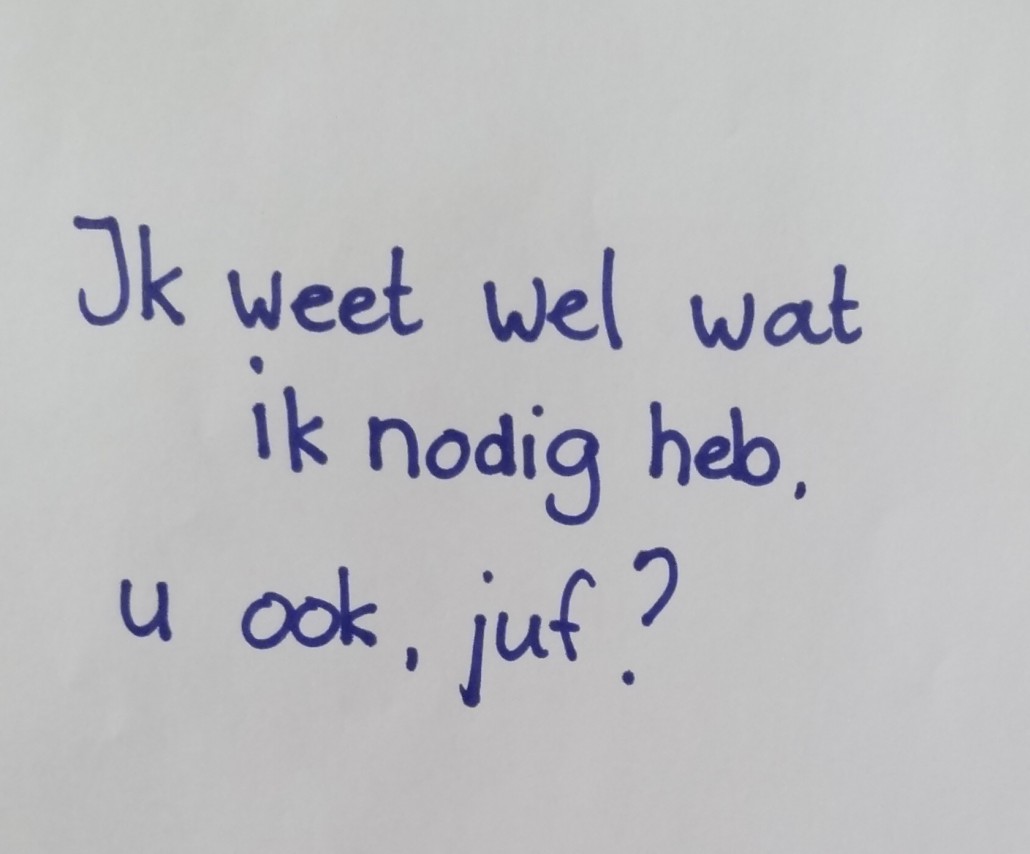 Ik weet wel wat
ik nodig heb,
u ook, juf?